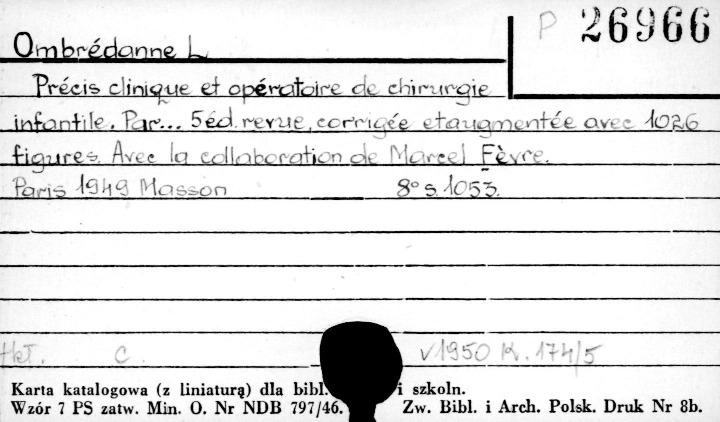 P 26966
Ombrédanne L
Précis clinique et opératoire de chirurgie
infantile. Par... 5éd. revue, corrigée et augmentée avec 1026
figures. Avec la collaboration de Marcel Fèvre.
Paris 1949 Masson 8° s. 1053.
Hkł. C. V 1950 K. 174/5
Karta katalogowa (z liniaturą) dla bibl. i szkoln.
Wzór 7 PS zatw. Min. O. Nr NDB 797/46. Zw. Bibl. i Arch. Polsk. Druk Nr 8b.